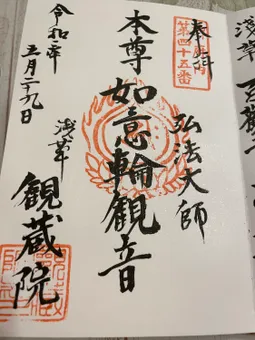 奉拝
第四十五番
弘法大師
本尊
如意輪觀音
浅草
觀蔵院
令和
五月二十九日